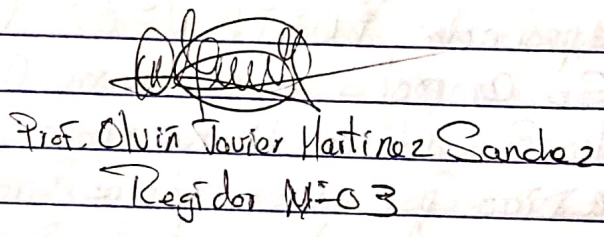 Prof. Olvin Javier Martinez Sanchez
Regidor Nº 03